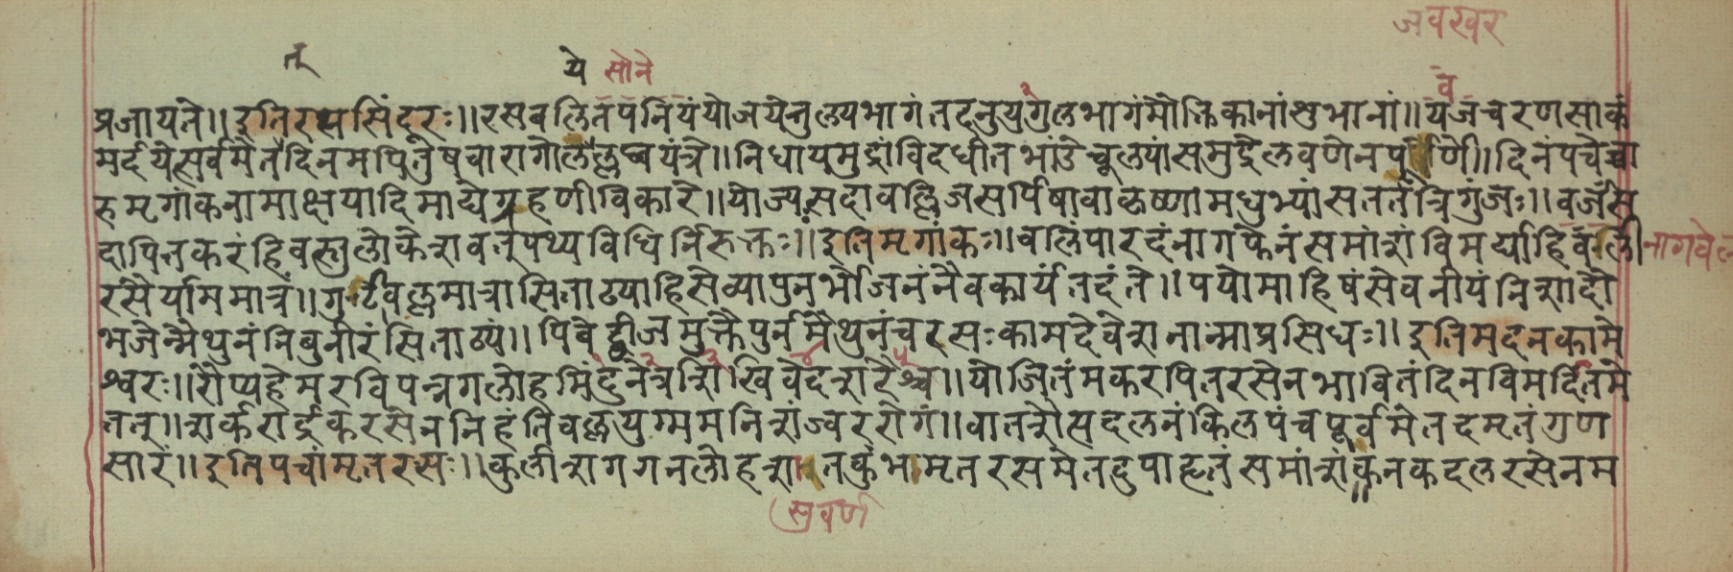 जवखर
त्
ये सोने
व
प्रजायते।। इतिरससिंदूरः।। रसबलितपनियंयोजयेत्तुल्यभागंतदनुयुगुलभागंमौक्तिकानांशुभानां।। यजचरणसाकं
मर्दयेत्सर्वमेतद्दिनमपितुषवारागोलंलघ्वयंत्रे।। निधायमुद्रांविदधीतभांडेचूल्यांसमुद्रेलवणेनपूर्णे।। दिनंपचेच्चा
रुमृगांकनामाक्षयादिमाद्येग्रहणीविकारे।। योज्यःसदावल्लिजसर्पिषावाकृष्णामधुभ्यांसततंत्रिगुंजः।। वर्जस
दापित्तकरंहिवस्तुलोकेशवत्पथ्यविधिर्निरुक्तः।। इतिमृगांकः।। बलिंपारदंनागफेनंसमांशंविमर्द्याहिवल्ली
नागवेल
रसैर्याममात्रं।। गुटीवल्लमात्रासिताढ्याहिसेव्यापुनर्भोजनंनैवकार्यंतदंते।। पयोमाहिषंसेवनीयंनिशादौ
भजेन्मैथुनंनिंबुनीरंसिताढ्यं।। पिबेद्बीजमुक्तौपुर्नमैथुनंचरसःकामदेवेशनान्माप्रसिधः।। इतिमदनकामे
श्वरः।। रौप्यहेमरविपन्नगलोहमिंदुनेत्रशिखिवेदशरैश्च।। योजितंमकरपितरसेनभावितंदिनविमर्दितमे
तत्।। शर्करार्द्रकरसेननिहंतिवल्लयुग्ममनिशंज्वररोगं।। वातशोसदलनंकिलपंचपूर्वमेतदमृतंगुण
सारं।। इतिपचांमृतरसः।। कुलीशगगनलोहशातकुंभामृतरसमेतदुपाहृतंसमांशं।। कनकदलरसेनम
सुवर्ण